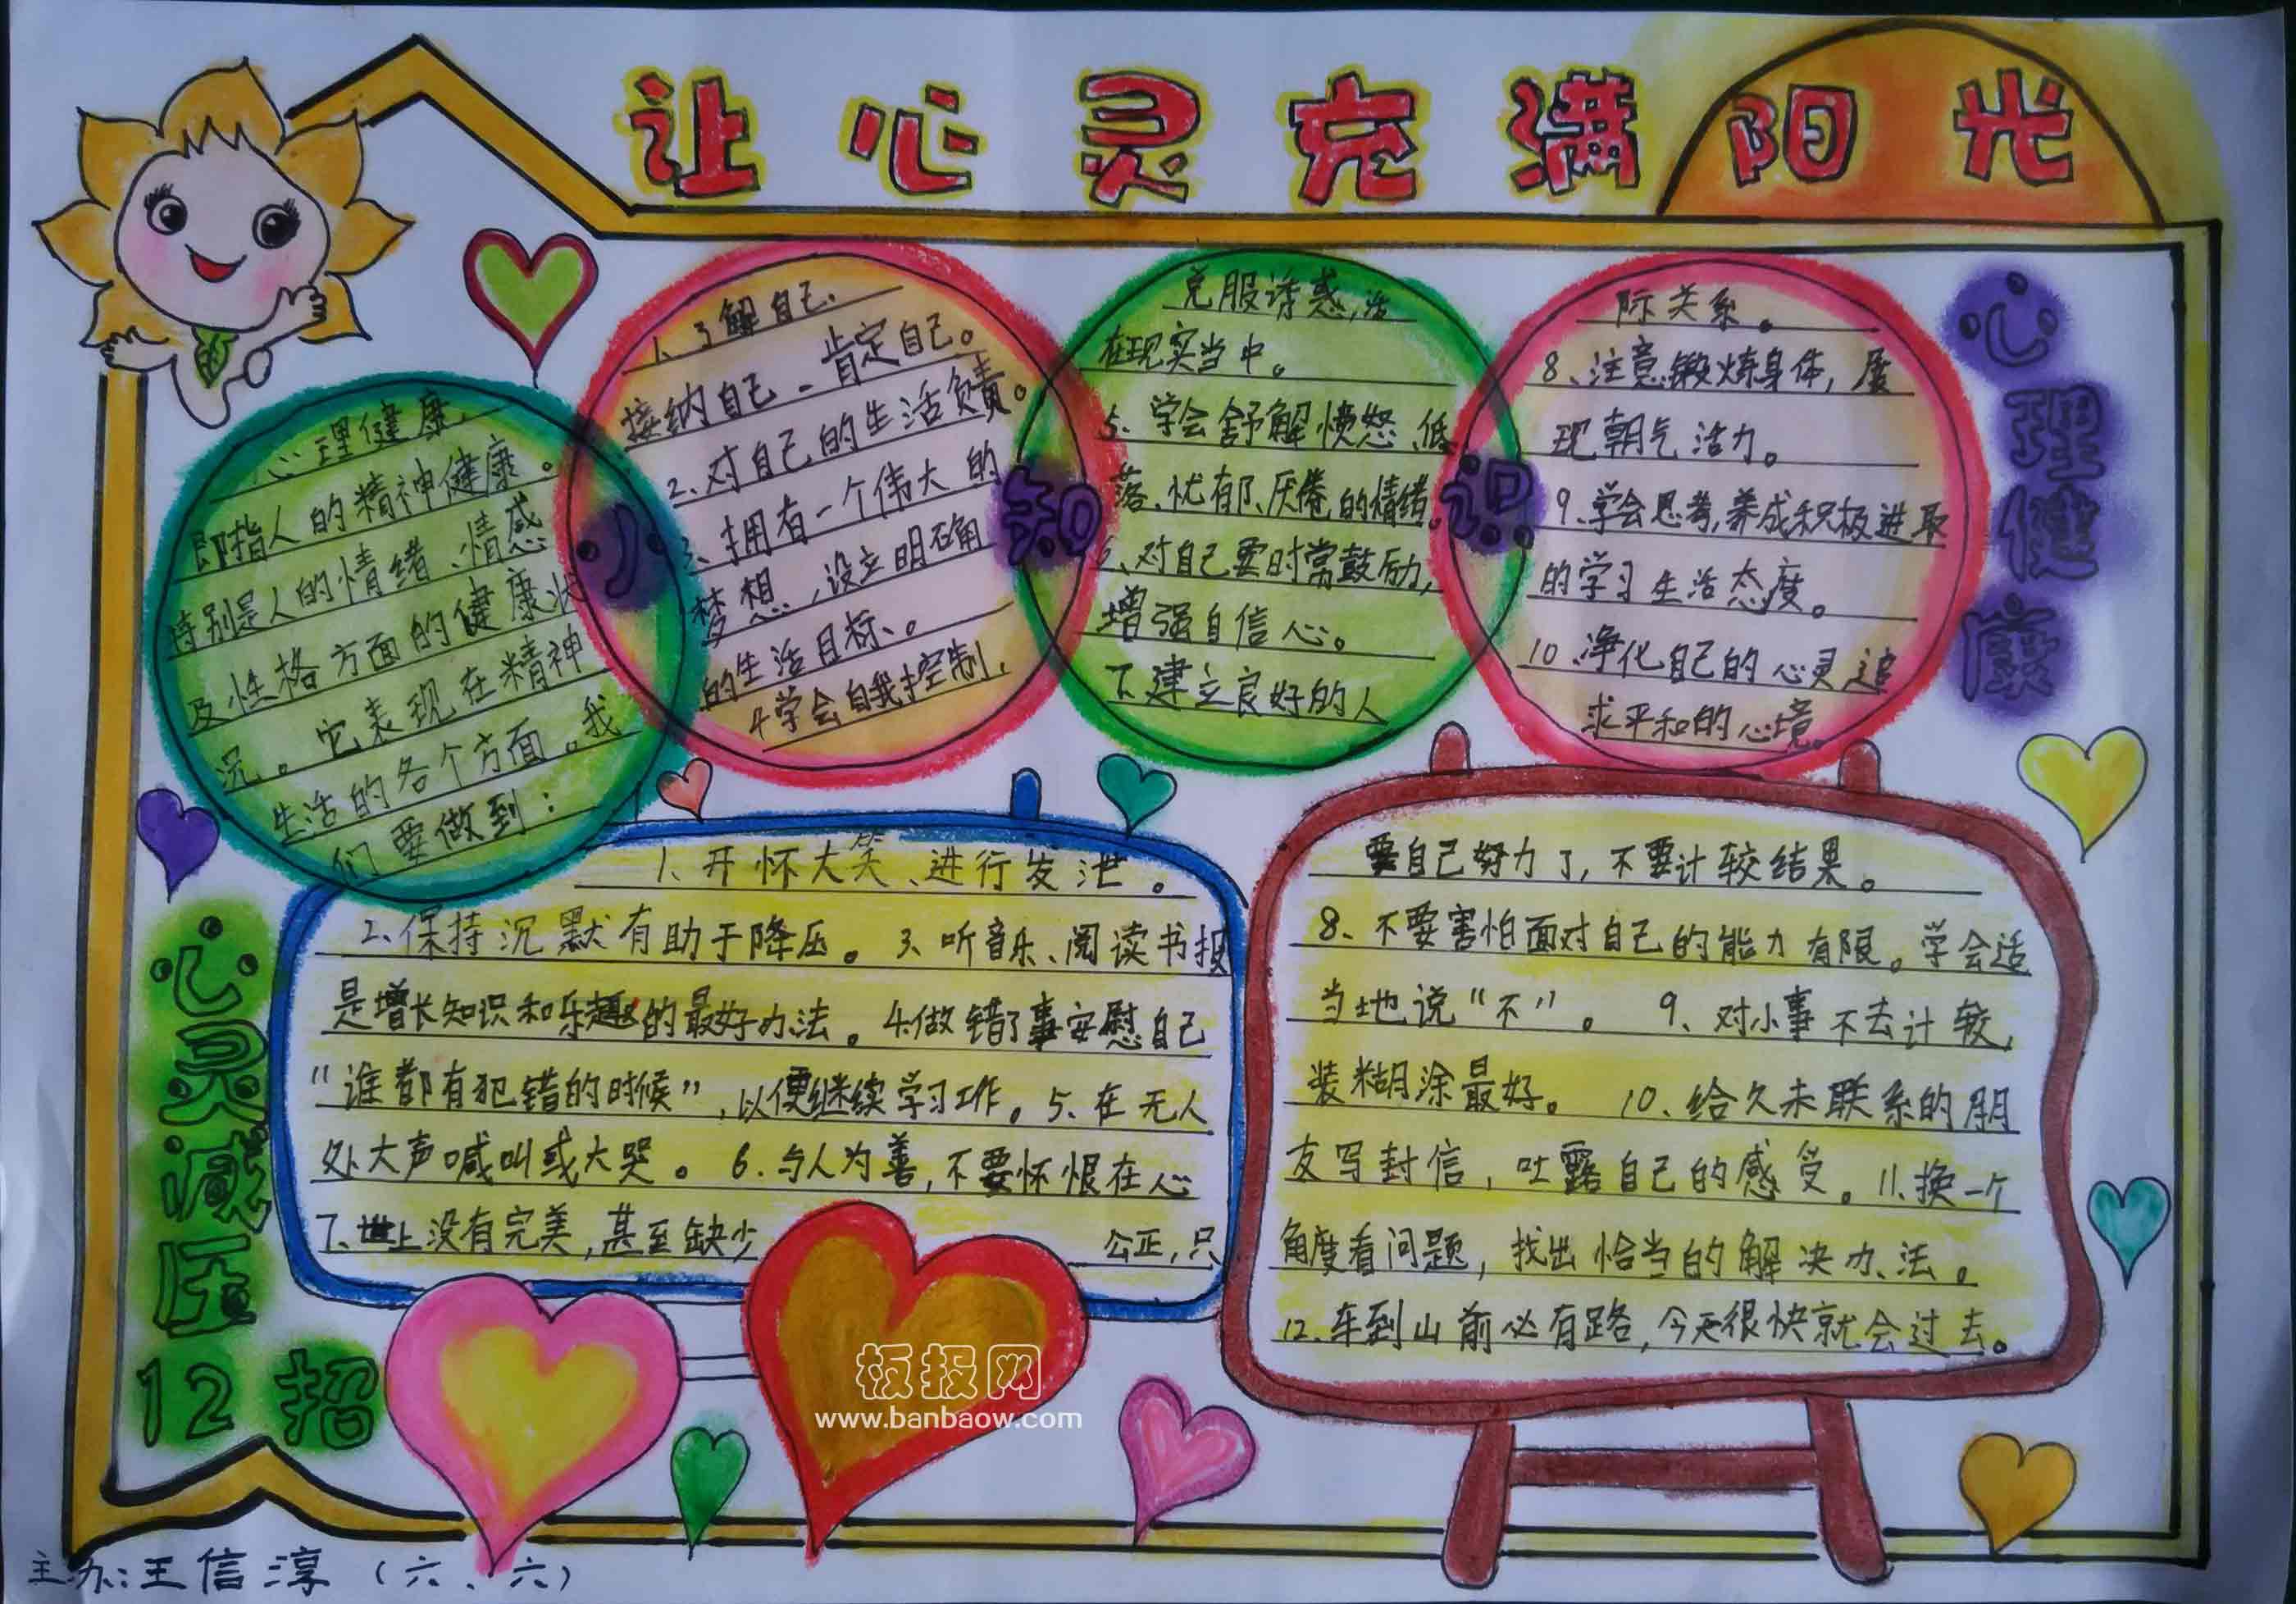 让心灵充满阳光
心理健康
心 知 识
心理健康,
即指人的精神健康。
特别是人的情绪、情感
及性格方面的健康状
况。它表现在精神
生活的各个方面。我
们要做到：
1、了解自己、
接纳自己、肯定自己。
2、对自己的生活负责。
3、拥有一个伟大的
梦想，设立明确
的生活目标、。
4学会自我控制、
克服诱惑,活
在现实当中。
5、学会舒解愤怒、低
落、忧郁、厌倦的情绪。
6、对自己要时常鼓励,
增强自信心。
7、建立良好的人
际关系。
8、注意锻炼身体，展
现朝气活力。
9、学会思考,养成积极进取
的学习生活态度。
10、净化自己的心灵追
求平和的心境。
心灵减压
12招
1、开怀大笑、进行发泄。
2、保持沉默有助于降压。3、听音乐、阅读书报
是增长知识和乐趣的最好办法。4.做错了事安慰自己
“谁都有犯错的时候”，以便继续学习工作。5、在无人
处大声喊叫或大哭。6、与人为善，不要怀恨在心
7、世上没有完美，甚至缺少 公正，只
要自己努力了，不要计较结果。
8、不要害怕面对自己的能力有限。学会适
当地说“不”。9、对小事不去计较，
装糊涂最好。10、给久未联系的朋
友写封信，吐露自己的感受。11、换一个
角度看问题，找出恰当的解决办法。
12、车到山前必有路，今天很快就会过去。
板报网
www.banbaow.com
主办:王信淳（六、六）